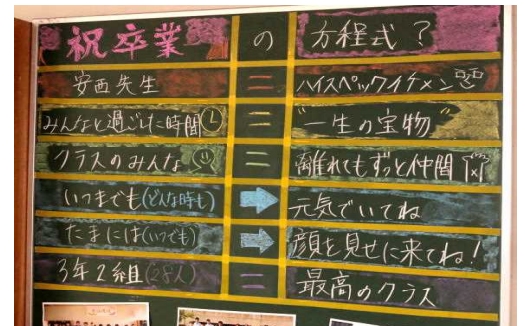 祝卒業 の 方程式?
安西先生 = ハイスペックイケメン
みんなと過ごした時間 = "一生の宝物"
クラスのみんな = 離れてもずっと仲間
いつまでも(どんな時も) → 元気でいてね
たまには(いつでも) → 顔を見せに来てね!
3年2組(28人) = 最高のクラス